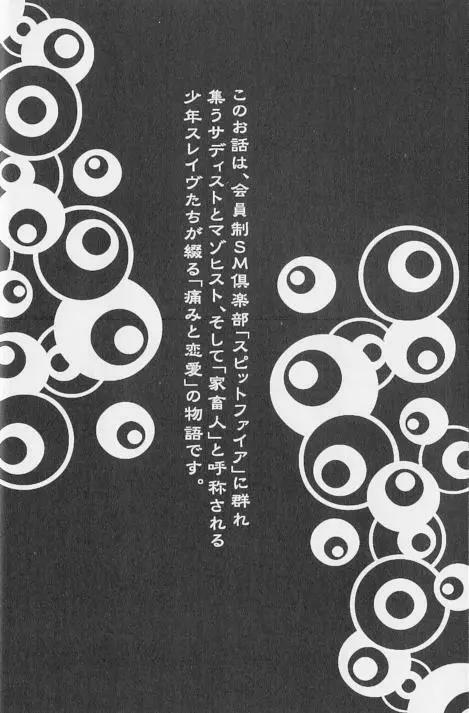 このお話は、会員制ＳＭ倶楽部「スピットファイア」に群れ
集うサディストとマゾヒスト、そして「家畜人」と呼称される
少年スレイヴたちが綴る「痛みと恋愛」の物語です。